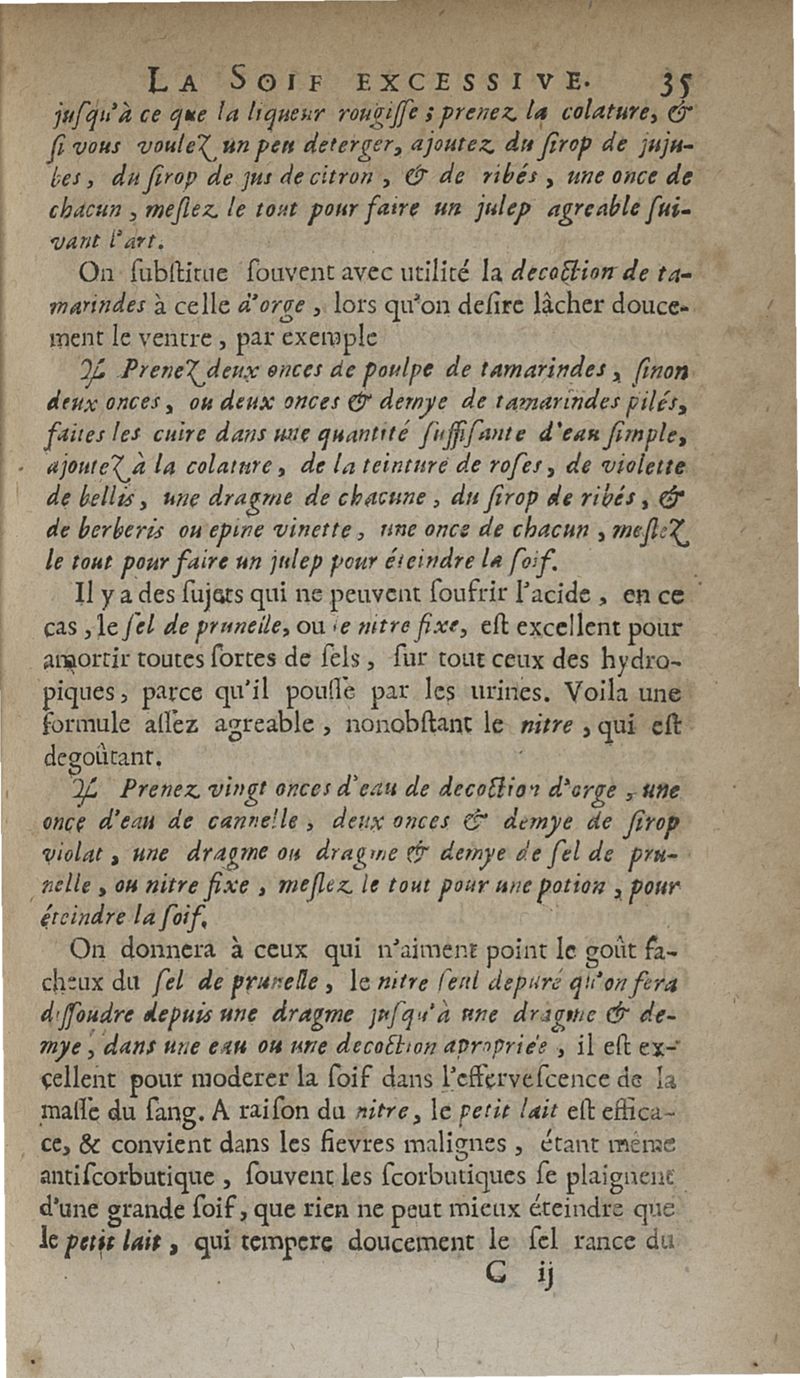 LA SOIF EXCESSIVE. 35
juſqu'à ce que la liqueur rougiſſe ; prenez la colature, &
ſi vous voulez un peu deterger, ajoutez du ſirop de juju-
bes, du ſirop de jus de citron, & de ribés, une once de
chacun, meſlez le tout pour faire un julep agreable ſui-
vant l'art.
On ſubſtitue ſouvent avec utilité la decoction de ta-
marindes à celle d'orge, lors qu'on deſire lâcher douce-
ment le ventre, par exemple
♃ Prenez deux onces de poulpe de tamarindes, ſinon
deux onces, ou deux onces & demye de tamarindes pilés,
faites les cuire dans une quantité ſuffiſante d'eau ſimple,
ajoutez à la colature, de la teinture de roſes, de violette
de bellis, une dragme de chacune, du ſirop de ribés, &
de berberis ou epine vinette, une once de chacun, meſlez
le tout pour faire un julep pour éteindre la ſoif.
Il y a des ſujets qui ne peuvent ſoufrir l'acide, en ce
cas, le ſel de prunelle, ou le nitre fixe, eſt excellent pour
amortir toutes ſortes de ſels, ſur tout ceux des hydro-
piques, parce qu'il pouſſe par les urines. Voila une
formule aſſez agreable, nonobſtant le nitre, qui eſt
degoûtant.
♃ Prenez vingt onces d'eau de decoction d'orge, une
once d'eau de cannelle, deux onces & demye de ſirop
violat, une dragme ou dragme & demye de ſel de pru-
nelle, ou nitre fixe, meſlez le tout pour une potion, pour
éteindre la ſoif.
On donnera à ceux qui n'aiment point le goût fa-
cheux du ſel de prunelle, le nitre ſeul depuré qu'on fera
diſſoudre depuis une dragme juſqu'à une dragme & de-
mye, dans une eau ou une decoction apropriée, il eſt ex-
cellent pour moderer la ſoif dans l'efferveſcence de la
maſſe du ſang. A raiſon du nitre, le petit lait eſt effica-
ce, & convient dans les fievres malignes, étant même
antiſcorbutique, ſouvent les ſcorbutiques ſe plaignent
d'une grande ſoif, que rien ne peut mieux éteindre que
le petit lait, qui tempere doucement le ſel rance du
C ij